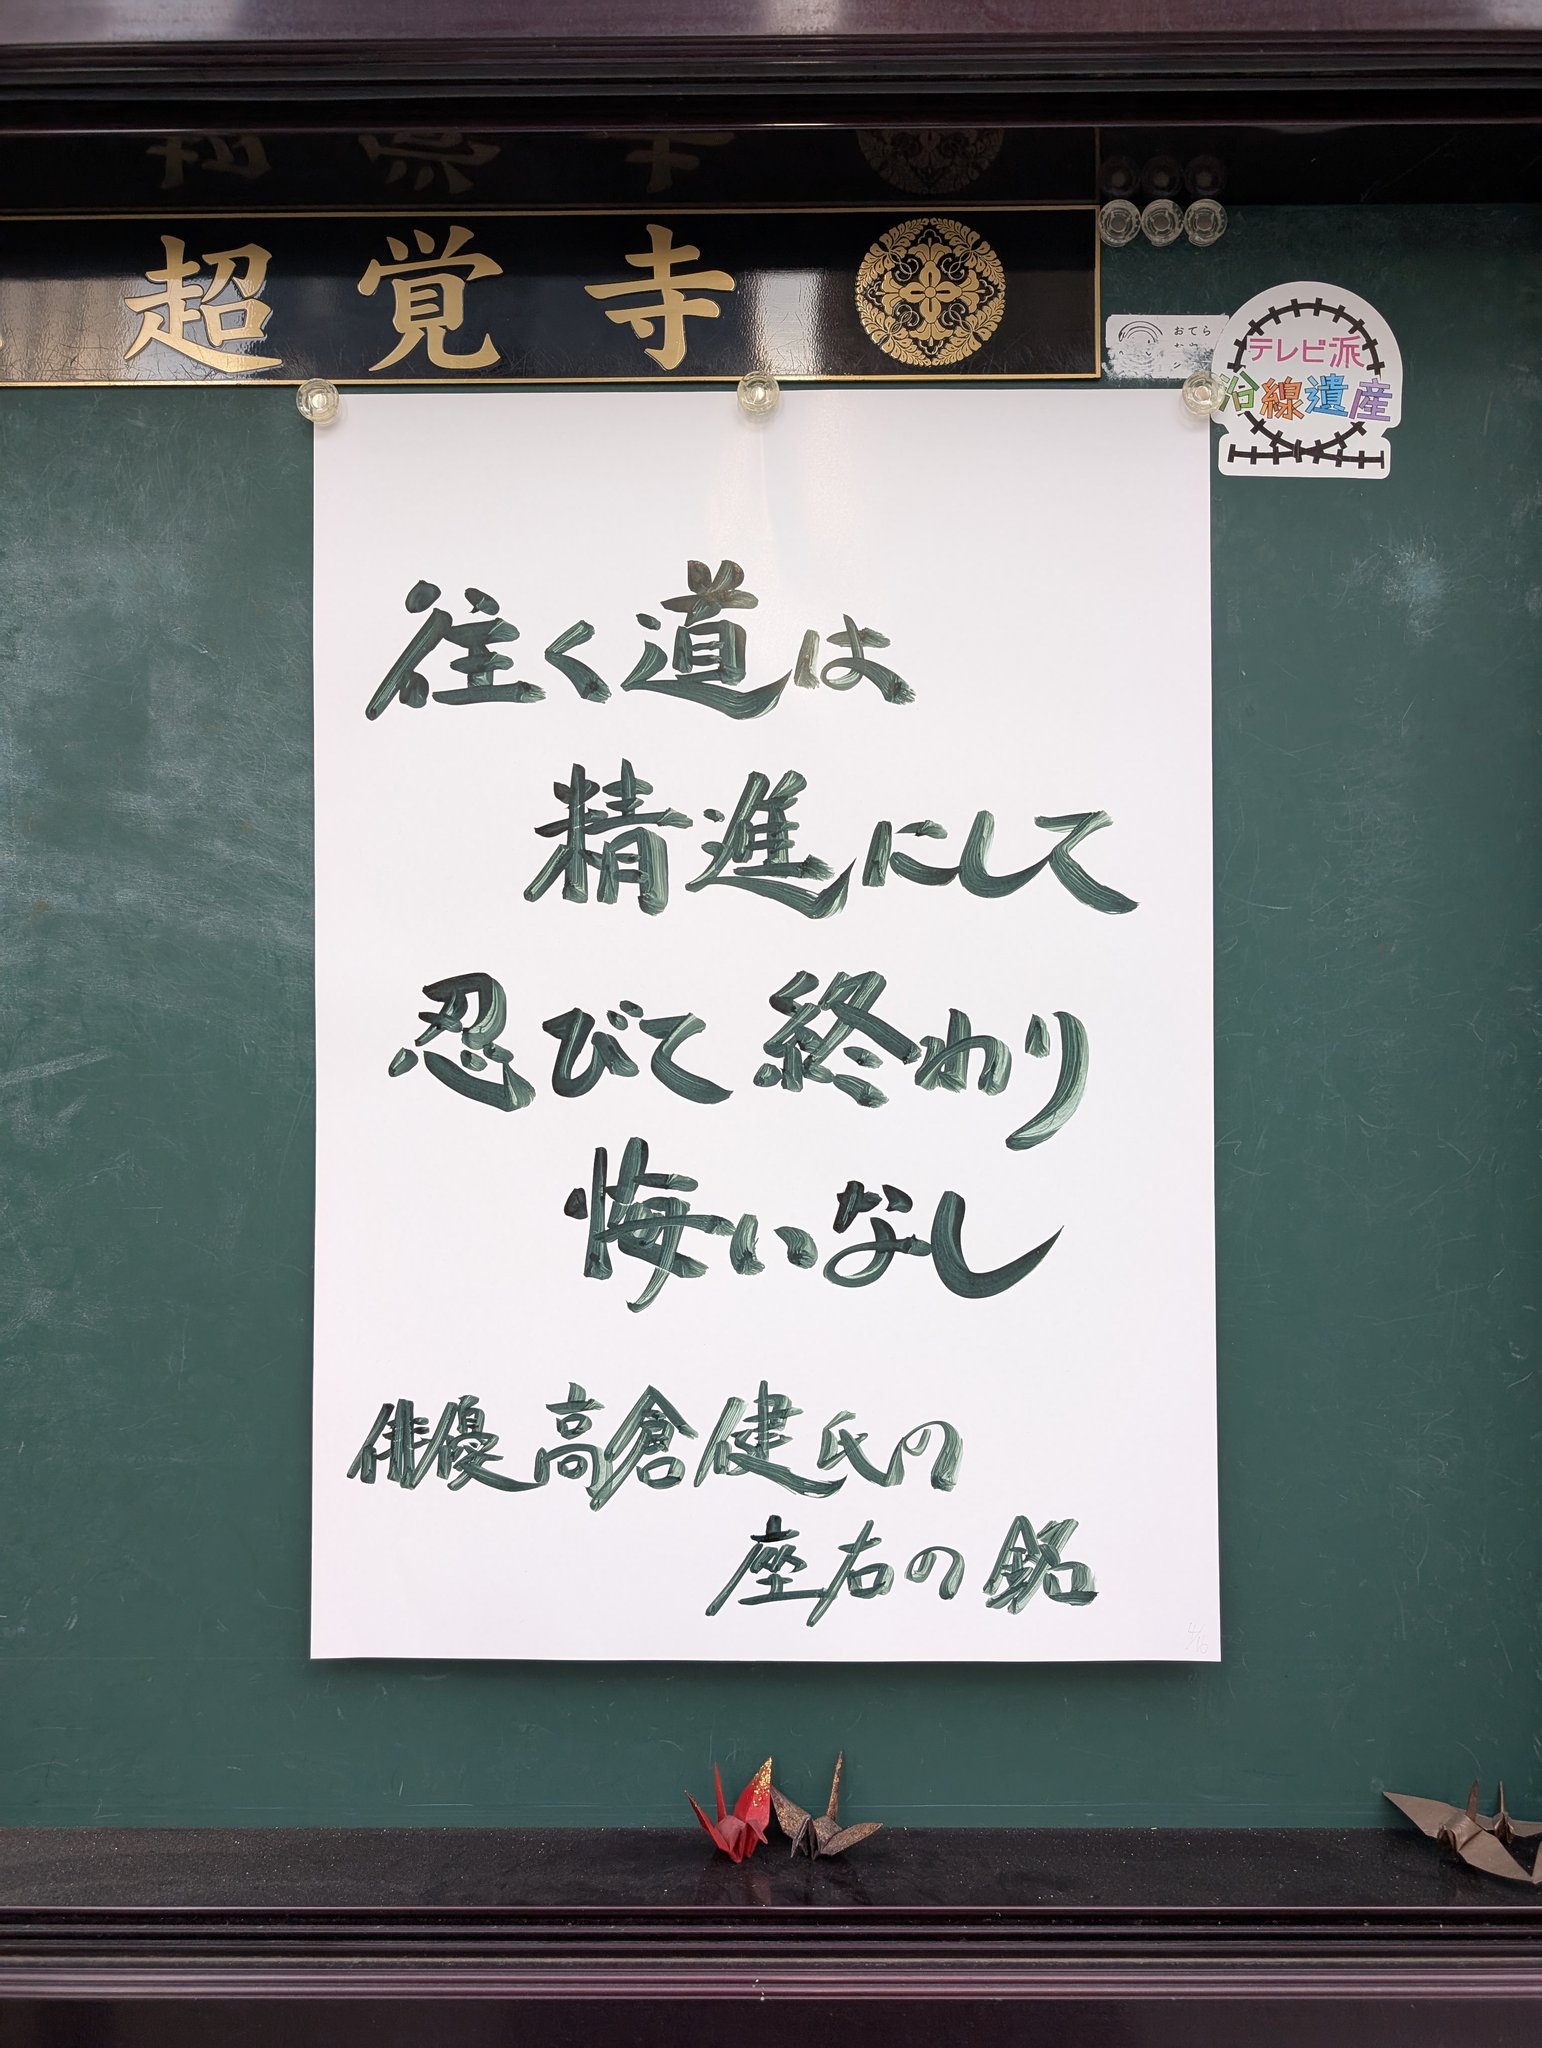 超覚寺
おてら
テレビ派
沿線遺産
往く道は
精進にして
忍びて終わり
悔いなし
俳優 高倉健氏の
座右の銘
4/16